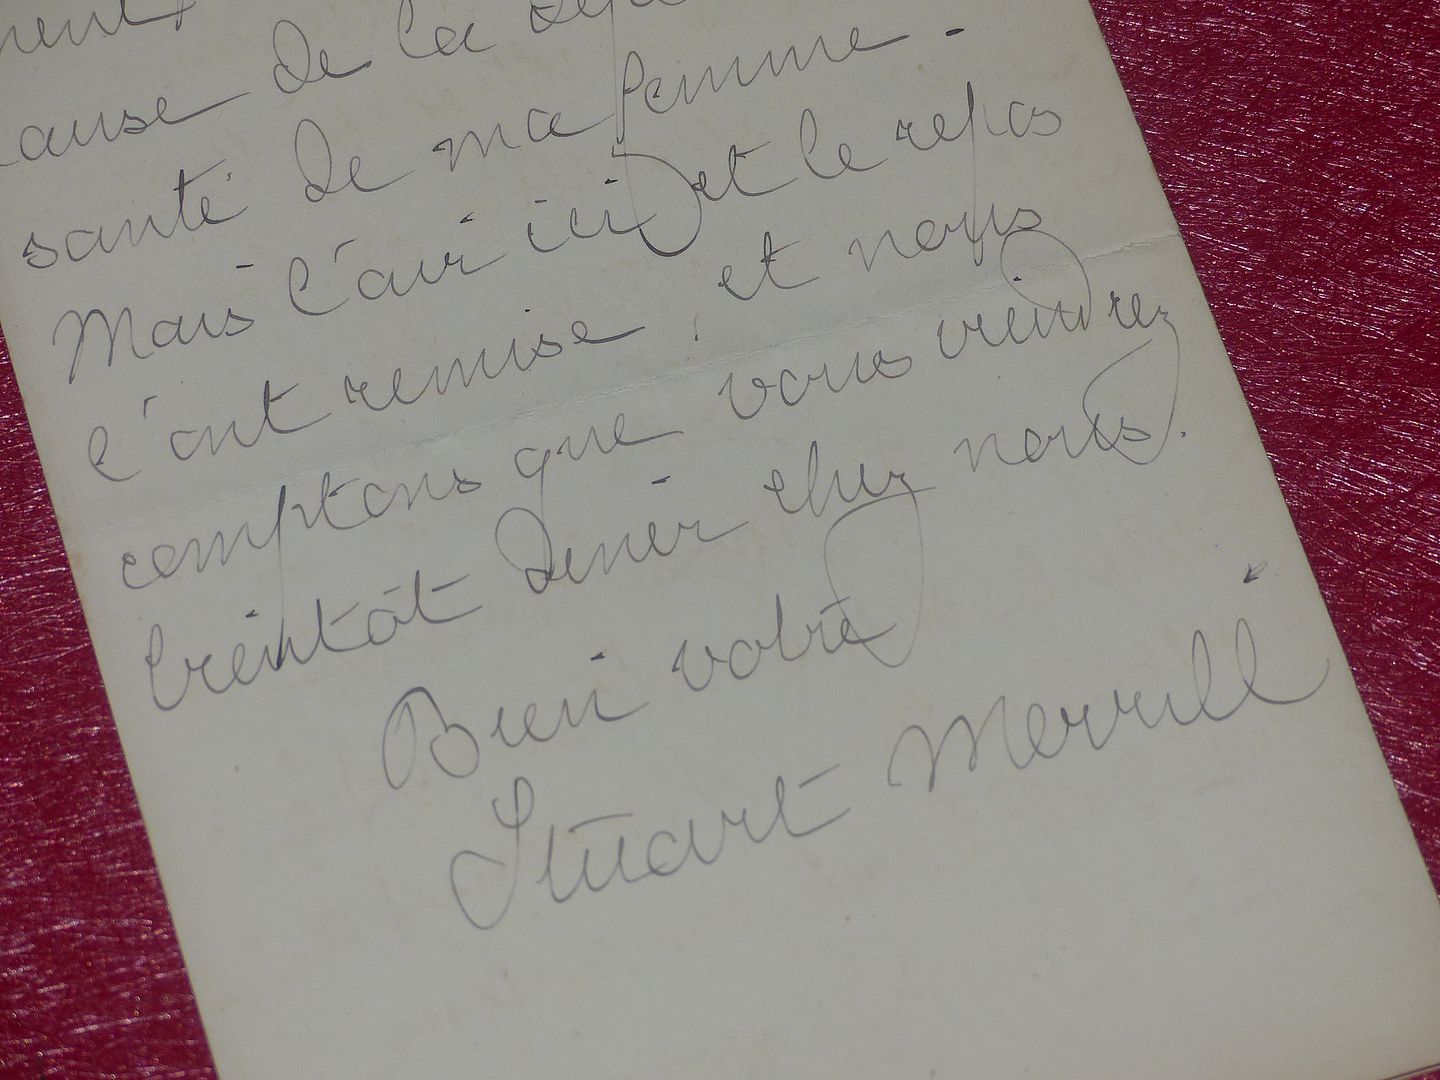 cause de la
santé de ma femme.
Mais l'air ici et le repos
l'ont remise, et nous
comptons que vous viendrez
bientôt diner chez nous.
Bien votre
Stuart Merrill